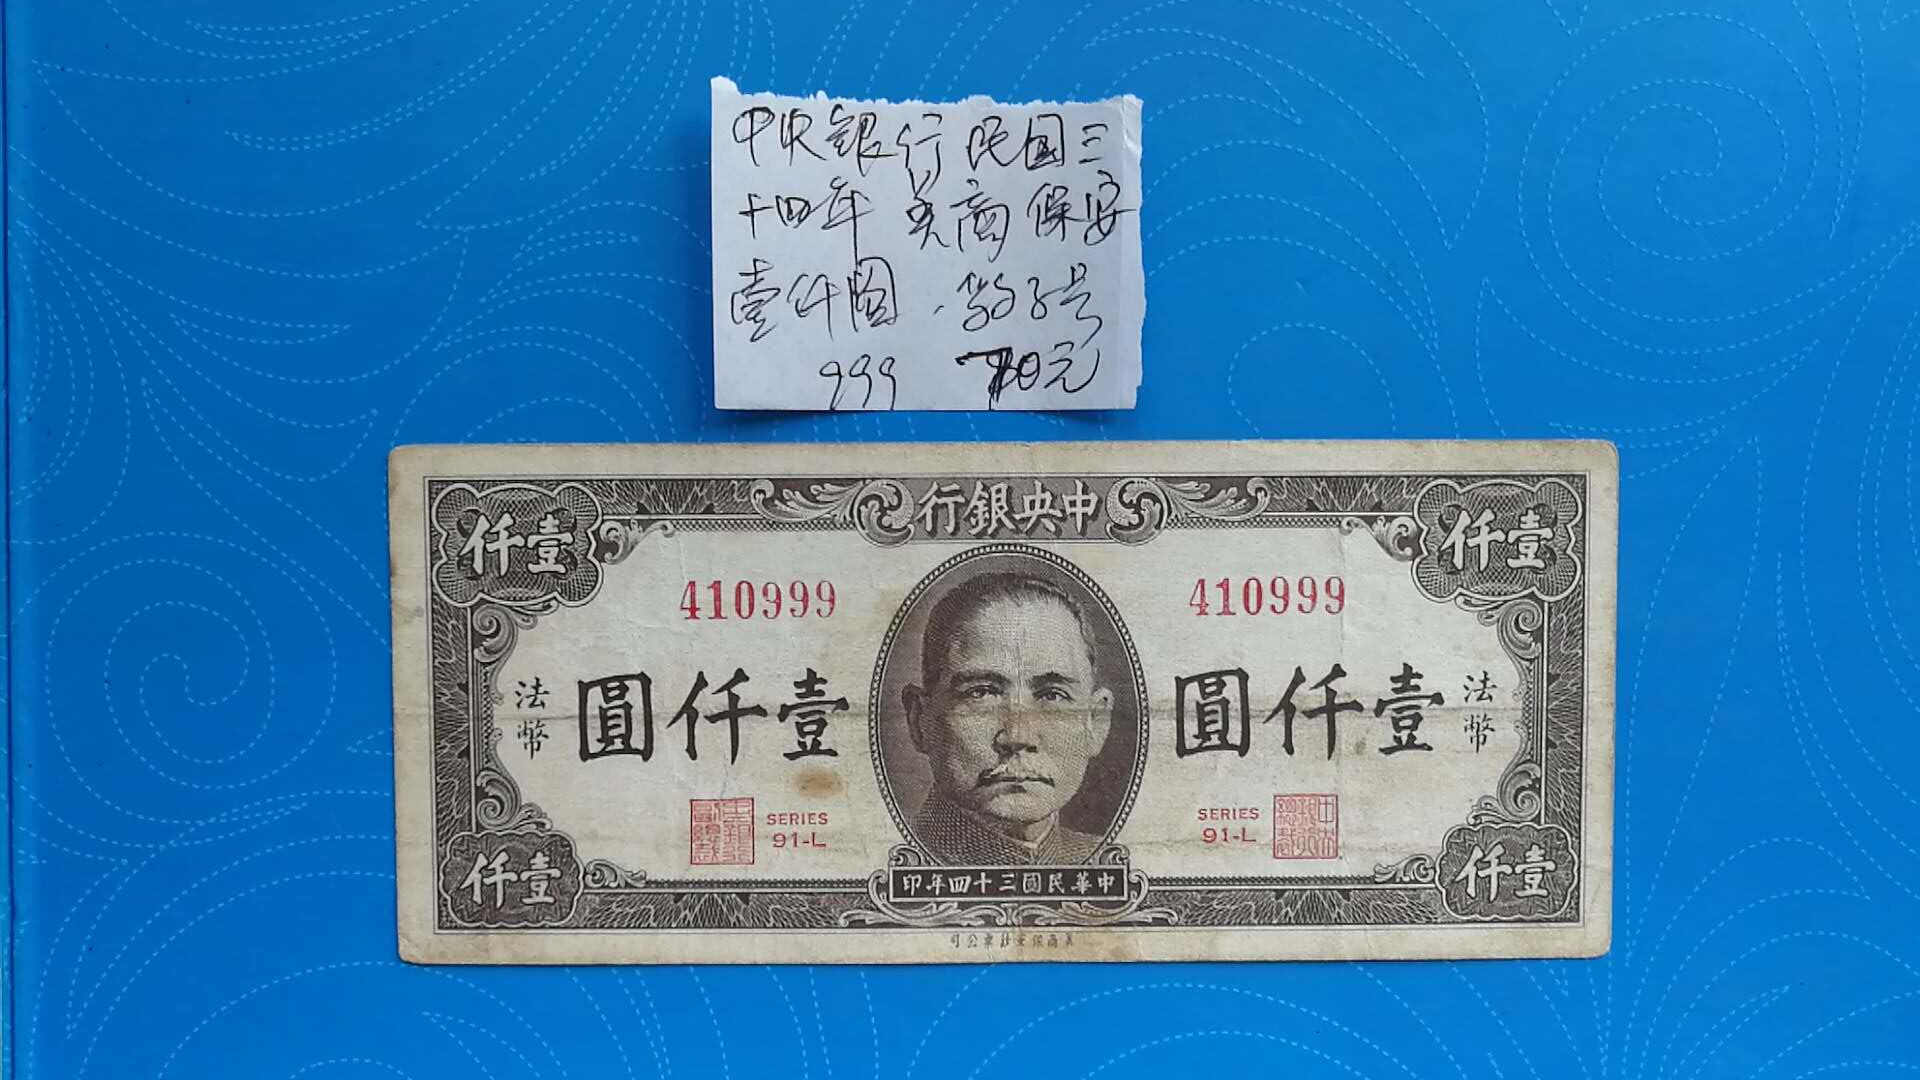 中央銀行 民国三
十四年 美商保安
壹仟圓
999 元
中央銀行
壹仟
壹仟
410999
410999
法幣
壹仟圓
壹仟圓
法幣
SERIES
91-L
SERIES
91-L
中央銀行總裁
壹仟
壹仟
中華民國三十四年印
美商保安鈔票公司